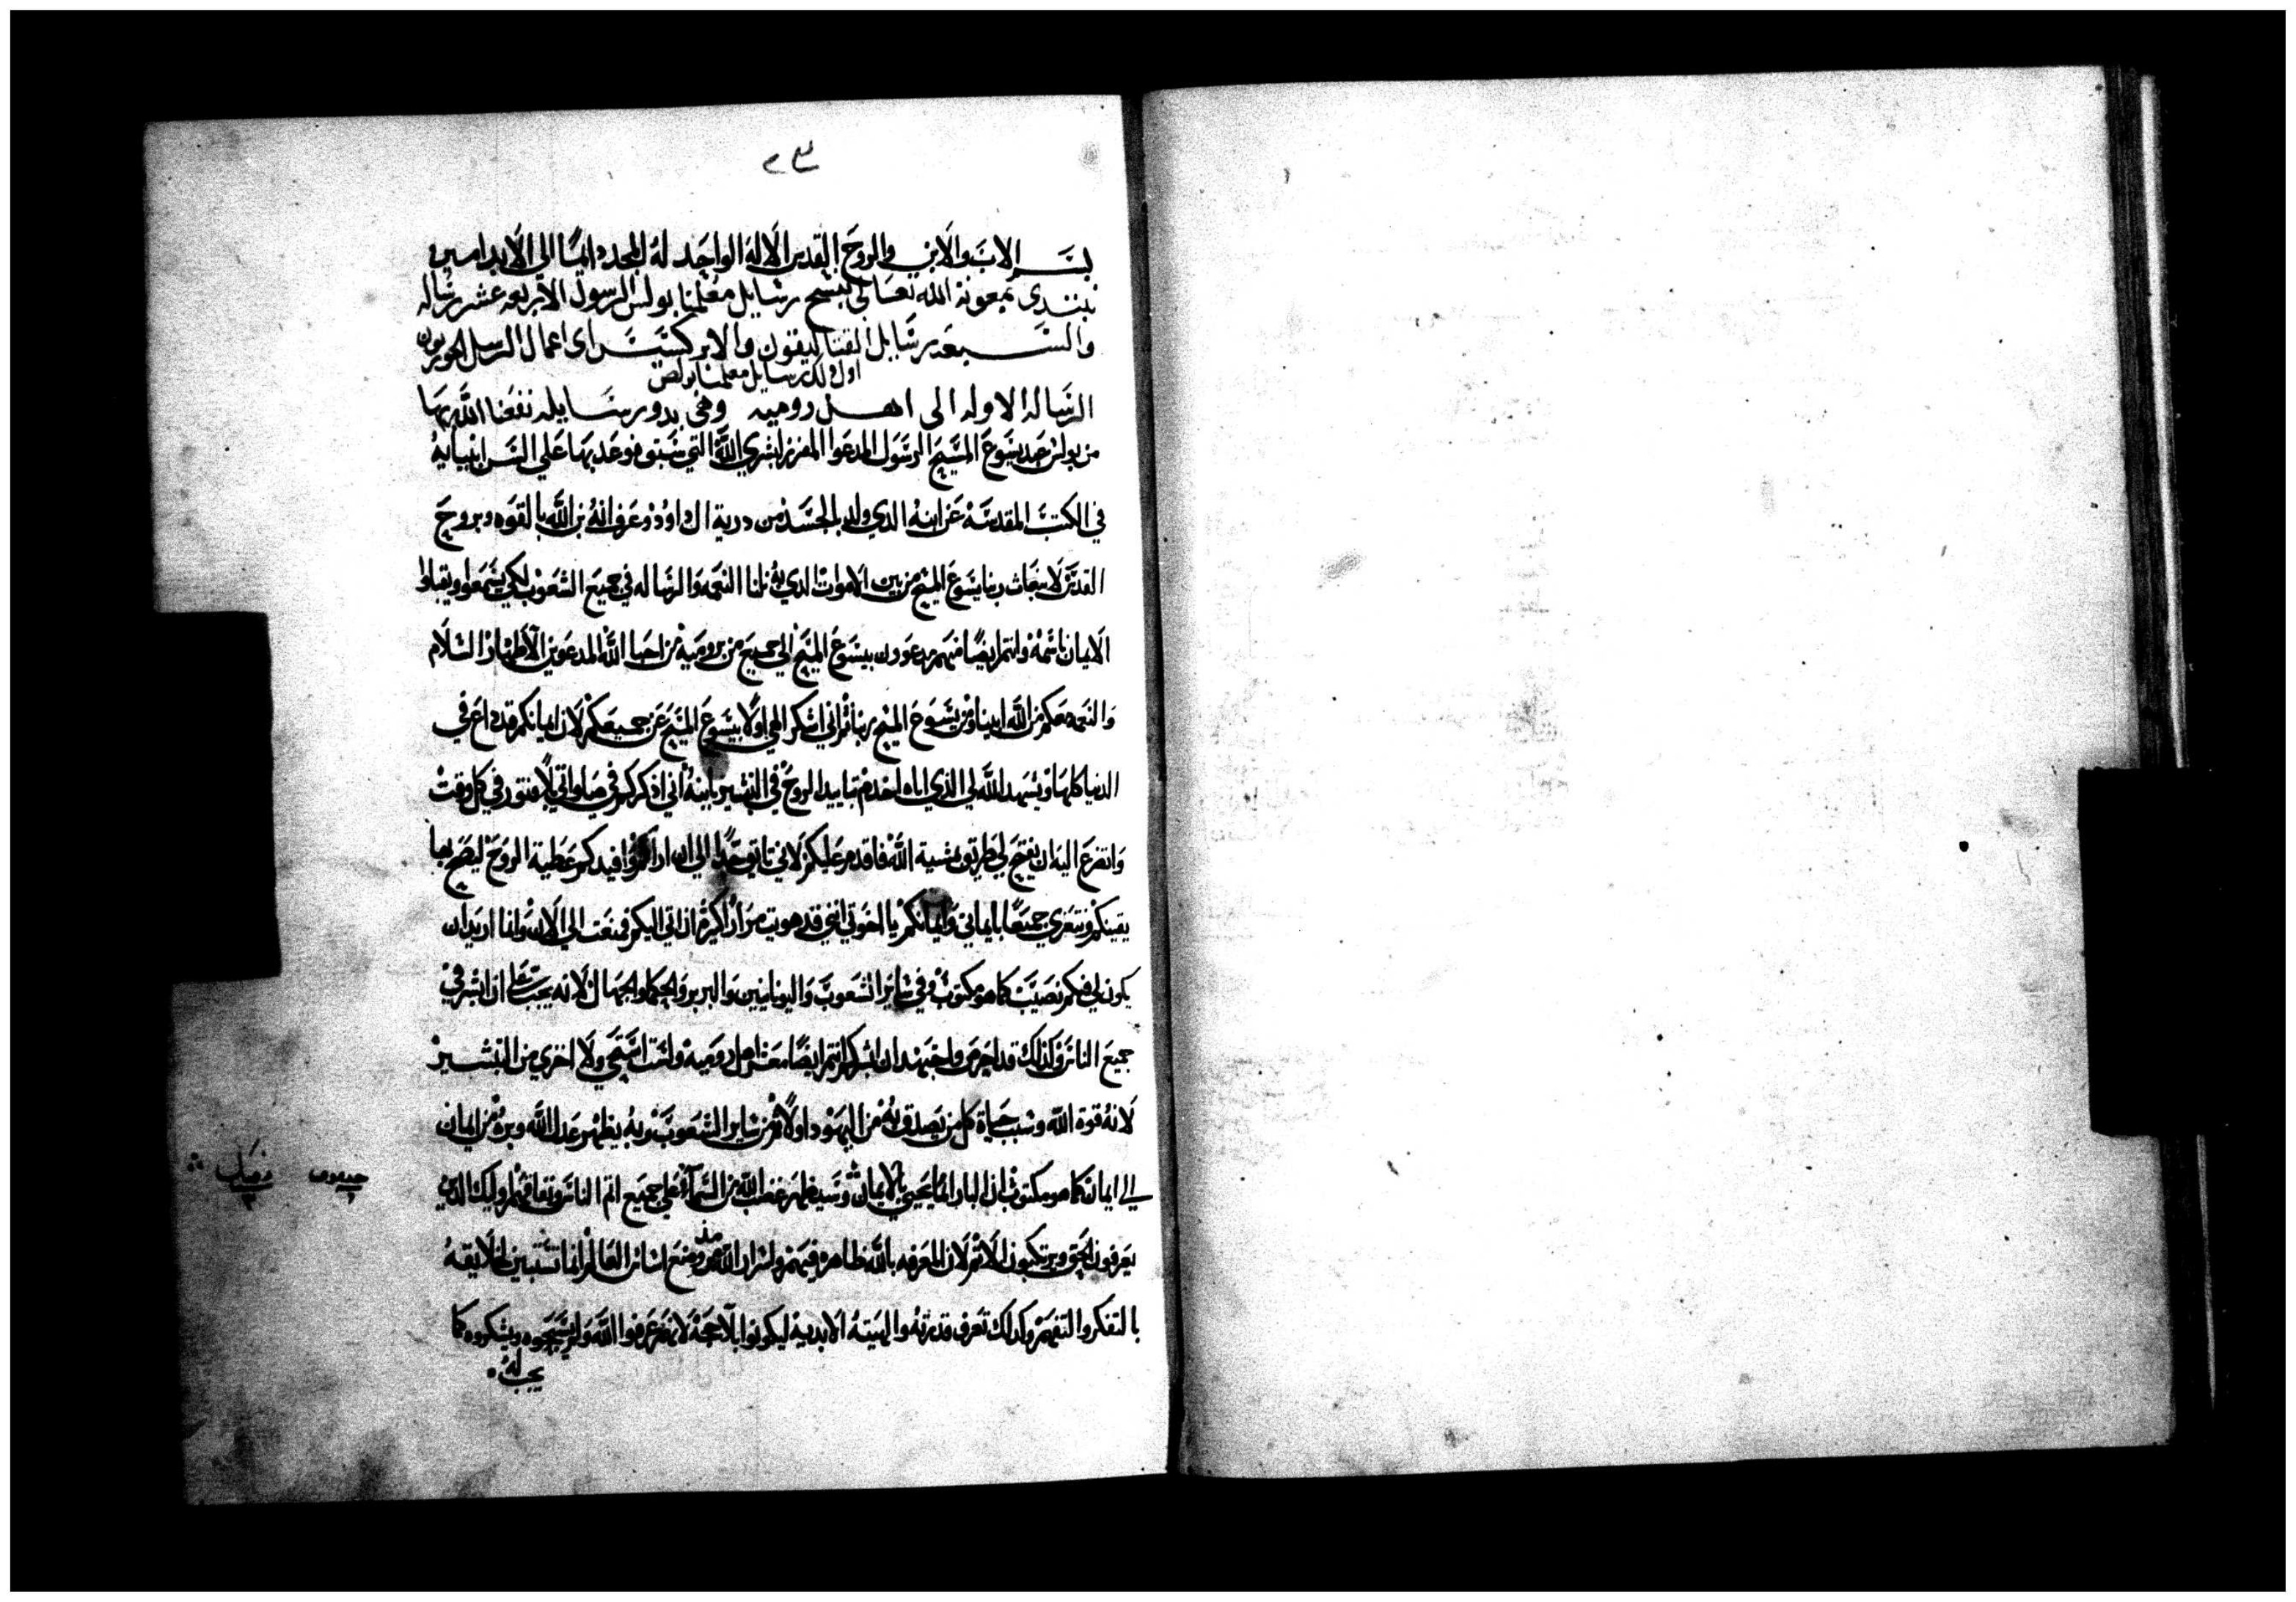 بسم الاب والابن والروح القدس الاله الواحد له المجد دايمًا الي الابد امين
نبتدي بمعونة الله تعالي بنسخ رسايل معلمنا بولس الرسول الاربعه عشر رساله
والسبعه رسايل القتاليقون والابركسيس اى اعمال الرسل الحوريون
اول ذلك رسايل معلمنا بولص
الرساله الاوله الى اهل روميه وهى بدو رسايله نفعنا الله بها
من بولس عبد يسوع المسيح الرسول المدعوا المفرز لبشري الله التي سبق فوعد بها علي السن انبيايه
في الكتب المقدسه عن ابنه الدي ولد بالجسد من درية ال داوود وعرف انه بن الله بالقوه وبروح
القدس لانبعاث ربنا يسوع المسيح من بين الاموات الدي به نلنا النعمه والرساله في جميع الشعوب لكي يسمعوا ويقبلوا
الايمان باسمه وانتم ايضًا منهم مدعوون بيسوع المسيح الي جميع من بروميه من احبا الله المدعوين الاطهار السلام
والنعمه معكم من الله ابينا ومن يسوع المسيح ربنا ثم اني اشكر الهي اولًا بيسوع المسيح عن جميعكم لان ايمانكم قد داع في
الدنيا كلها ويشهد الله لي الذي اياه اخدم بتاييد الروح في التبشير بابنه اني اذكركم في صلواتي بلا فتور في كل وقت
واتضرع اليه ان يفتح لي طريق بمشية الله فاقدم عليكم لاني تايق جدًا الي ان اراكم وافيدكم عطية الروح ليصح بها
يقينكم ونتعزي جميعًا بايماني وايمانكم يا اخوتي انني قد هويت مرارًا كثيرة ان اتي اليكم فمنعت الي الان وانا اريد ان
يكون لي فيكم نصيب كما هو مكتوب وفي ساير الشعوب واليونانيين والبربر والحكما والجهال لانه يجب علي ان ابشر في
جميع الناس وكذلك قد احرص واجتهد ان ابشركم انتم ايضًا معشر اهل روميه ولست استحي ولا اخزي من التبشير
لانه قوة الله وسبب حياة كل من يصدق به من اليهود اولًا ثم من ساير الشعوب وبه يظهر عدل الله وبره من ايمان
الي ايمان كما هو مكتوب ان البار انما يحيي بالايمان وسيظهر غضب الله من السما علي جميع اتم الناس ونفاقهم اوليك الدين
يعرفون الحق ويرتكبون الاتم لان المعرفه بالله ظاهره فيهم
بالتفكر والتفهم وكدلك تعرف قدرته والهيته الابديه ليكونوا بلا حجة لانهم عرفوا الله ولم يسبحوه ويشكروه كما
يجب له
فصل